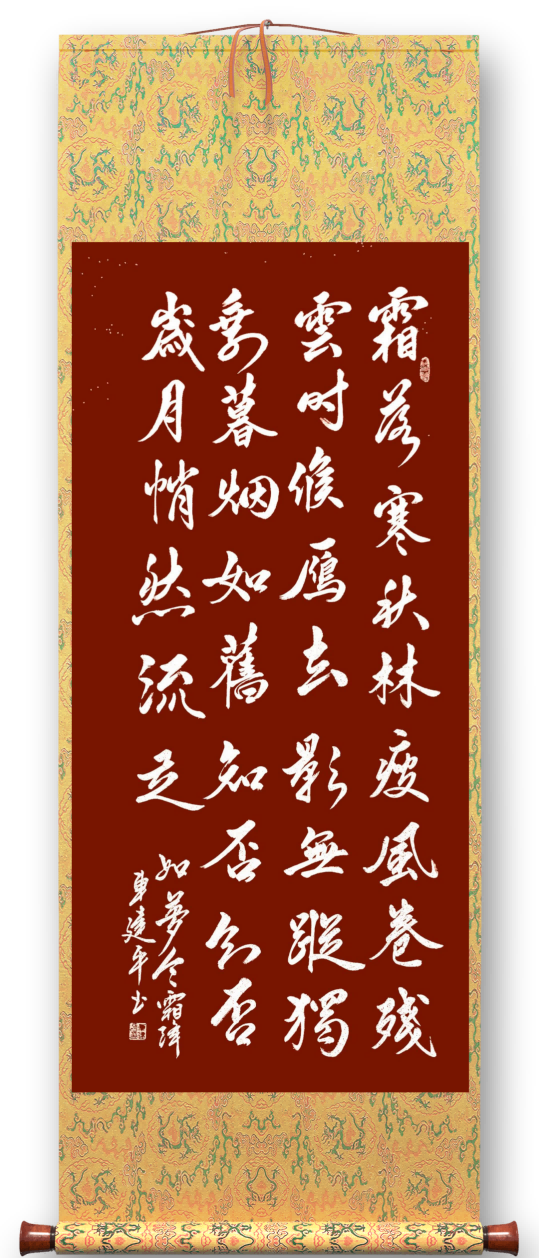 霜落寒秋林瘦風卷殘
雲时候雁去影無蹤獨
剩暮烟如舊知否知否
歲月悄然流走
如夢令霜降
车建平书